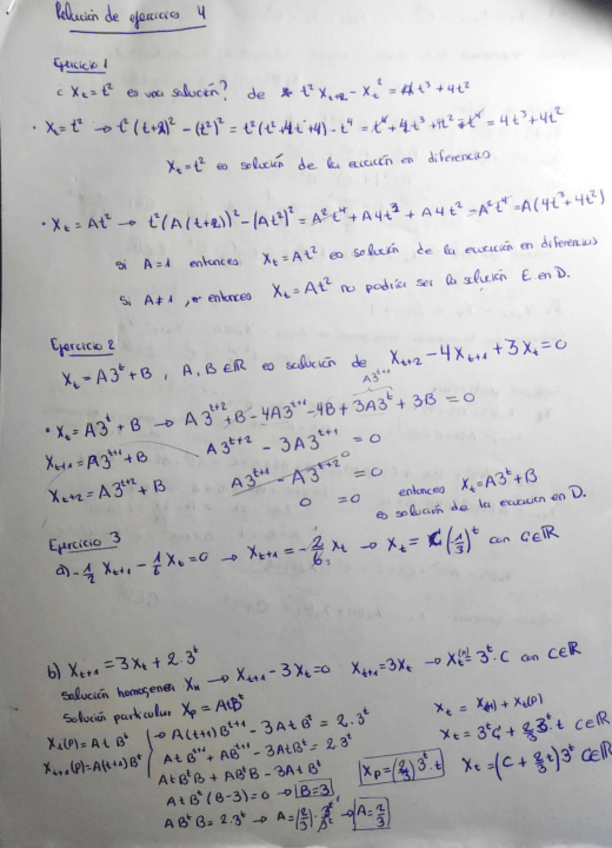 Relación de ejercicios 4
Ejercicio 1
¿ X_t = t² es una solución? de t² X_{t+2} - X_t² = 4t³ + 4t²
· X_t = t² → t²(t+2)² - (t²)² = t²(t²+4t+4) - t⁴ = t⁴ + 4t³ + 4t² - t⁴ = 4t³ + 4t²
X_t = t² es solución de la ecuación en diferencias
· X_t = At² → t²(A(t+2))² - (At²)² = A²t⁴ + A4t³ + A4t² - A²t⁴ = A(4t³ + 4t²)
si A = 1 entonces X_t = At² es solución de la ecuación en diferencias
si A ≠ 1, entonces X_t = At² no podría ser la solución E. en D.
Ejercicio 2
X_t = A3^t + B, A, B ∈ ℝ es solución de X_{t+2} - 4X_{t+1} + 3X_t = 0
A3^{t+1}
· X_t = A3^t + B → A3^{t+2} + B - 4A3^{t+1} - 4B + 3A3^t + 3B = 0
X_{t+1} = A3^{t+1} + B A3^{t+2} - 3A3^{t+1} = 0
X_{t+2} = A3^{t+2} + B A3^{t+1} - A3^{t+2} 0 = 0
0 = 0 entonces X_t = A3^t + B
es solución de la ecuación en D.
Ejercicio 3
a) -1/2 X_{t+1} - 1/6 X_t = 0 → X_{t+1} = -2/6 3 X_t → X_t = C(-1/3)^t con C ∈ ℝ
b) X_{t+1} = 3X_t + 2·3^t
Solución homogenea X_H → X_{t+1} - 3X_t = 0 X_{t+1} = 3X_t → X_t^{(H)} = 3^t · C con C ∈ ℝ
Solución particular X_p = AtB^t
X_t(P) = At B^t → A(t+1)B^{t+1} - 3AtB^t = 2·3^t
X_{t+1}(P) = A(t+1)B^t AtB^{t+1} + AB^{t+1} - 3AtB^t = 2·3^t
AtB^tB + AB^tB - 3AtB^t
AtB^t(B-3) = 0 → B = 3
AB^tB = 2·3^t → A = (2/3)·3^t/3^t → A = 2/3
X_p = (2/3)3^t·t
X_t = X_t(H) + X_t(P)
X_t = 3^tC + 2/3 3^t·t C ∈ ℝ
X_t = (C + 2/3 t)3^t C ∈ ℝ